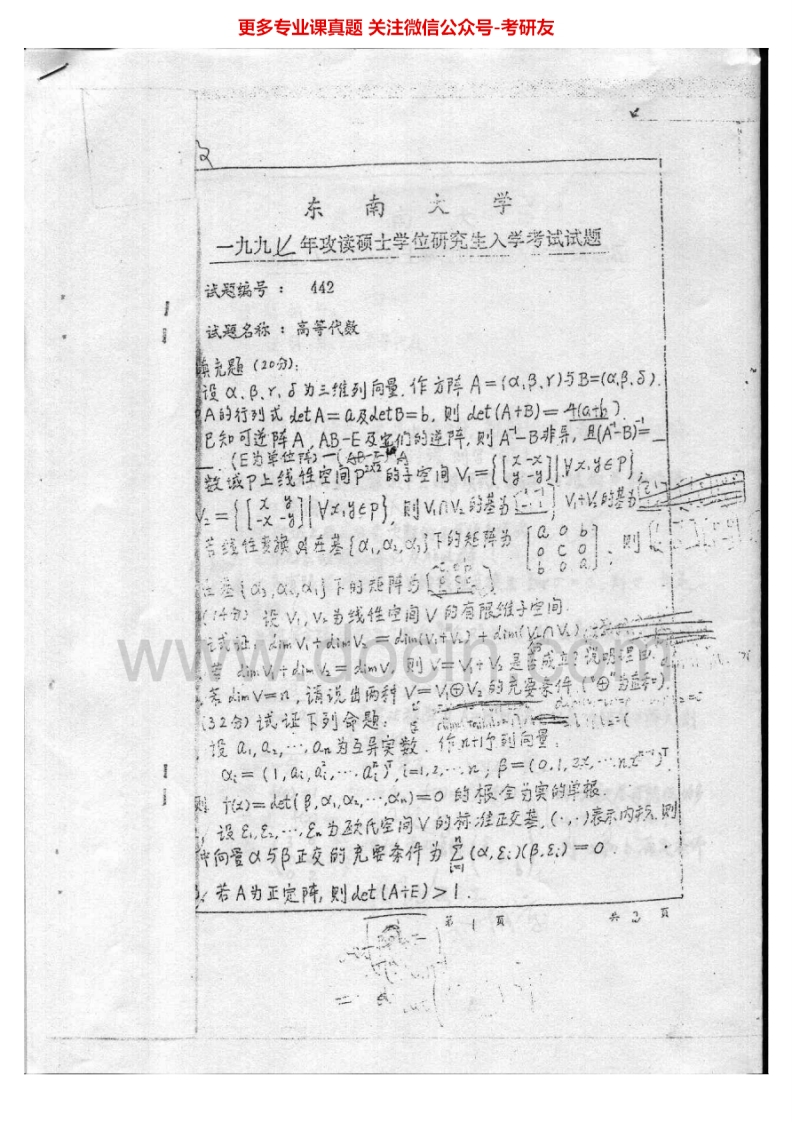 更多专业课真题 关注微信公众号-考研友
东 南 大 学
一九九 年攻读硕士学位研究生入学考试试题
试题编号： 442
试题名称：高等代数
填充题（20分）：
设 α、β、γ、δ 为三维列向量．作方阵 A=(α,β,γ)与B=(α,β,δ)．
A的行列式 detA=a及detB=b, 则 det(A+B)= 4(a+b)．
已知可逆阵A, AB-E及它们的逆阵, 则 A⁻¹-B非异, 且(A⁻¹-B)⁻¹=
(E为单位阵)
数域P上线性空间P²ˣ²的子空间 V₁={[x -x; y -y] | ∀x,y∈P},
V₂={[x y; -x -y] | ∀x,y∈P}, 则V₁∩V₂的基为 V₁+V₂的基为
若线性变换 A 在基{α₁,α₂,α₃}下的矩阵为 [a 0 b; 0 c 0; b 0 a], 则
在基{α₃,α₂,α₁}下的矩阵为
(14分) 设 V₁,V₂为线性空间 V 的有限维子空间.
试证: dimV₁+dimV₂=dim(V₁+V₂)+dim(V₁∩V₂);
若 dimV₁+dimV₂=dimV, 则 V=V₁+V₂ 是否成立? 说明理由.
若 dimV=n, 请说出两种 V=V₁⊕V₂ 的充要条件. ("⊕"为直和).
(32分) 试证下列命题:
设 a₁,a₂,…,aₙ为互异实数. 作n+1个列向量:
αᵢ=(1,aᵢ,aᵢ²,…aᵢⁿ)ᵀ, i=1,2,…n; β=(0,1,2x,…nxⁿ⁻¹)ᵀ.
则 f(x)=det(β,α₁,α₂,…,αₙ)=0 的根全为实的单根.
设 ε₁,ε₂,…,εₙ为欧氏空间 V 的标准正交基, (·,·)表示内积, 则
中向量α与β正交的充要条件为 ∑ᵢ₌₁ⁿ(α,εᵢ)(β,εᵢ)=0.
若A为正定阵, 则det(A+E)>1.
第 1 页 共 2 页
www.docin.com